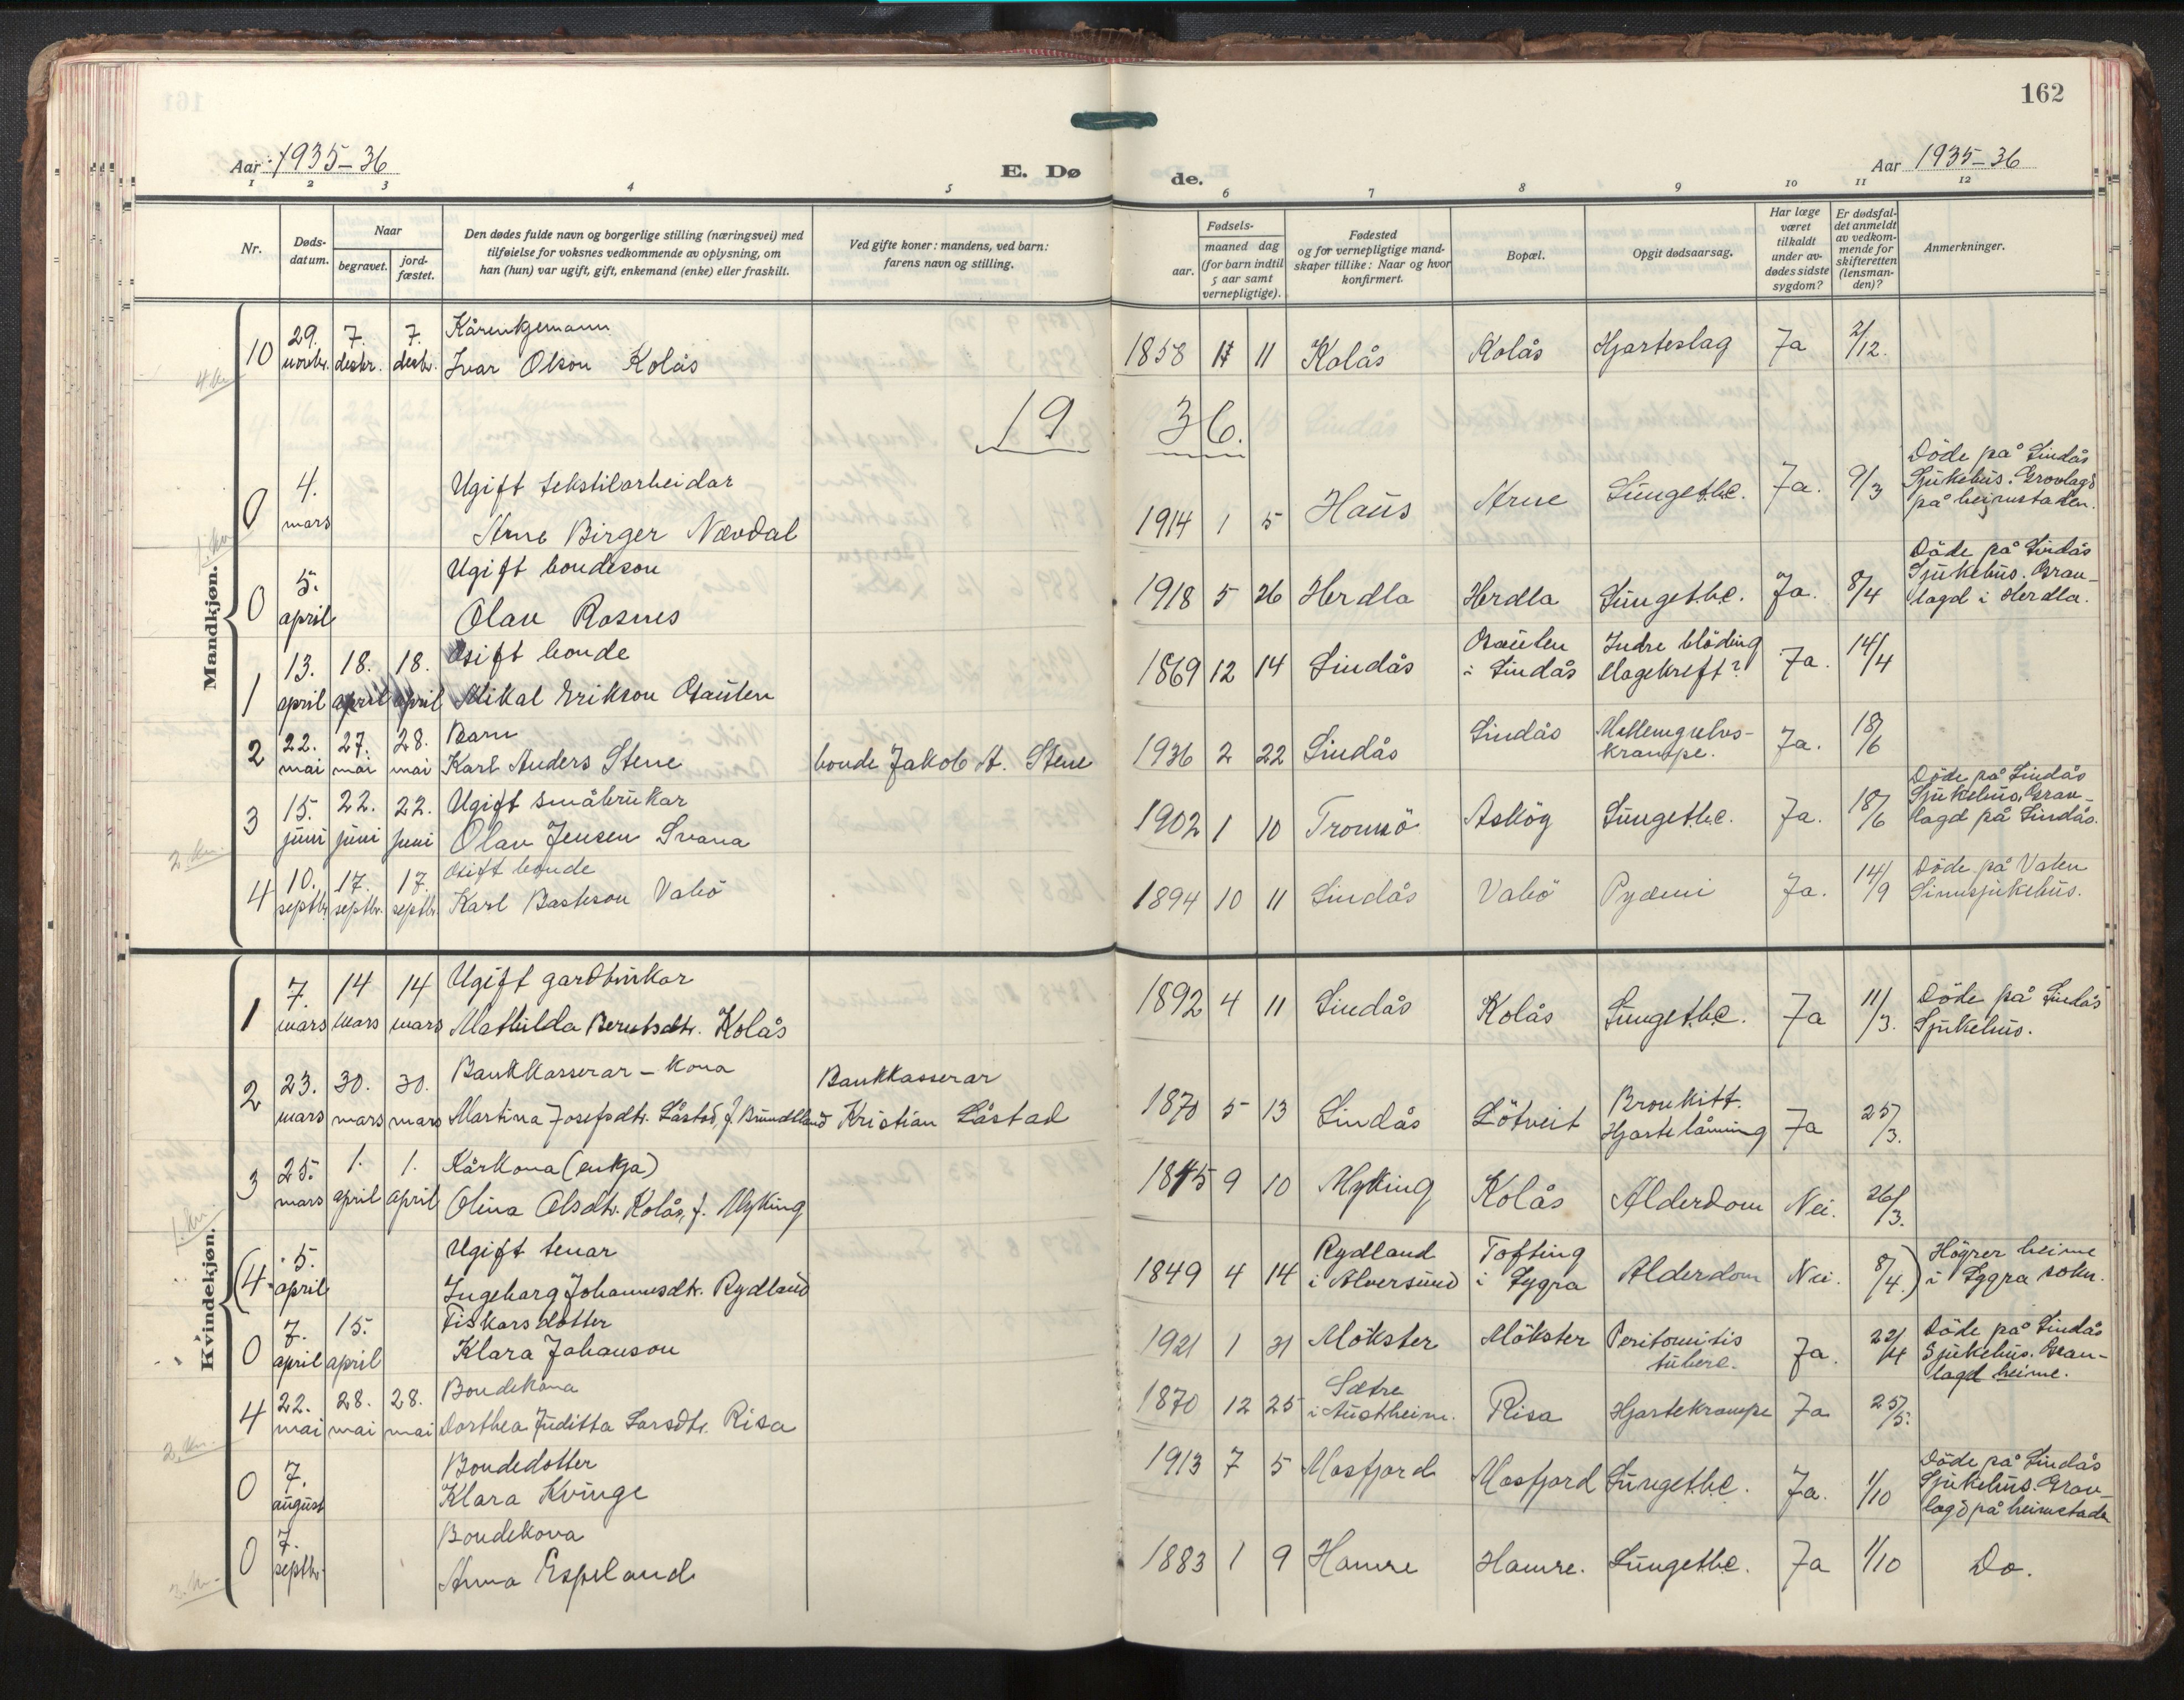 162
Aar 1935-36
E. Dø
de.
Aar 1935-36
1 2 3 4 5 6 7 8 9 10 11 12
Nr.
Døds-
datum.
Naar
begravet.
jord-
fæstet.
Den dødes fulde navn og borgerlige stilling (næringsvei) med
tilføielse for voksnes vedkommende av oplysning, om
han (hun) var ugift, gift, enkemand (enke) eller fraskilt.
Ved gifte koner: mandens, ved barn:
farens navn og stilling.
Fødsels-
aar.
maaned dag
(for barn indtil
5 aar samt
vernepligtige).
Fødested
og for vernepligtige mand-
skaper tillike: Naar og hvor
konfirmert.
Bopæl.
Opgit dødsaarsag.
Har læge
været
tilkaldt
under av-
dødes sidste
sygdom?
Er dødsfal-
det anmeldt
av vedkom-
mende for
skifteretten
(lensman-
den)?
Anmerkninger.
Mandkjøn.
10 29. novbr. 7. desbr. 7. desbr. Kårenkjemann
Ivar Olson Kolås 1858 11 11 Kolås Kolås Hjarteslag Ja 2/12.
1936.
0 4. mars Ugift tekstilarbeidar
Arne Birger Nævdal 1914 1 5 Haus Arne Lungetbc. Ja. 9/3 Döde på Lindås
Sjukehus. Gravlagd
på heimstaden.
0 5. april Ugift bondeson
Olav Rosnes 1918 5 26 Herdla Herdla Lungetbc. Ja. 8/4 Döde på Lindås
Sjukehus. Grav-
lagd i Herdla.
1 13. april 18. april 18. april Gift bonde
Mikal Erikson Gauten 1869 12 14 Lindås Gauten
i Lindås Indre blöding
Magekreft? Ja. 14/4
2 22. mai 27. mai 28. mai Barn
Karl Anders Stene bonde Jakob A. Stene 1936 2 22 Lindås Lindås Mellemgulvs-
krampe. Ja. 18/6
3 15. juni 22. juni 22. juni Ugift småbrukar
Olav Jensen Svana 1902 1 10 Tromsö Asköy Lungetbc. Ja. 18/6 Döde på Lindås
Sjukehus. Grav-
lagd på Lindås.
4 10. septbr. 17. septbr. 17. septbr. Gift bonde
Karl Basteson Vabö 1894 10 11 Lindås Vabö Pyæmi Ja. 14/9 Döde på Valen
Sinnsjukehus.
Kvindekjøn.
1 7. mars 14 mars 14 mars Ugift gardbrukar
Mathilda Berntsdtr. Kolås 1892 4 11 Lindås Kolås Lungetbc. Ja 11/3. Döde på Lindås
Sjukehus.
2 23. mars 30. mars 30. mars Bankkasserar-kona
Martina Josefsdtr. Låstad, f. Brundtland Bankkasserar
Kristian Låstad 1870 5 13 Lindås Lötveit Bronkitt.
Hjartelåming Ja 25/3.
3 25. mars 1. april 1. april Kårkona (enkja)
Olina Olsdtr. Kolås, f. Myking 1845 9 10 Myking Kolås Alderdom Nei. 26/3.
(4 5. april Ugift tenar
Ingeborg Johannesdtr. Rydland 1849 4 14 Rydland
i Alversund Tofting
i Lygra Alderdom Nei. 8/4.) Högrer heime
i Lygra sokn.
0 7. april 15. april Fiskarsdotter
Klara Johanson 1921 1 31 Mökster Mökster Peritonitis
tuberc. Ja. 22/4 Döde på Lindås
Sjukehus. Grav-
lagd heime.
4 22. mai 28. mai 28. mai Bondekona
Dorthea Juditta Larsdtr. Risa 1870 12 25 Sætre
i Austrheim. Risa Hjartekrampe Ja 25/5.
0 7. august Bondedotter
Klara Kvinge 1913 7 5 Masfjord Masfjord Lungetbc. Ja. 1/10 Döde på Lindås
Sjukehus. Grav-
lagd på heimstaden
0 7. septbr. Bondekona
Anna Espeland 1883 1 9 Hamre Hamre. Lungetbc. Ja 1/10 Do.